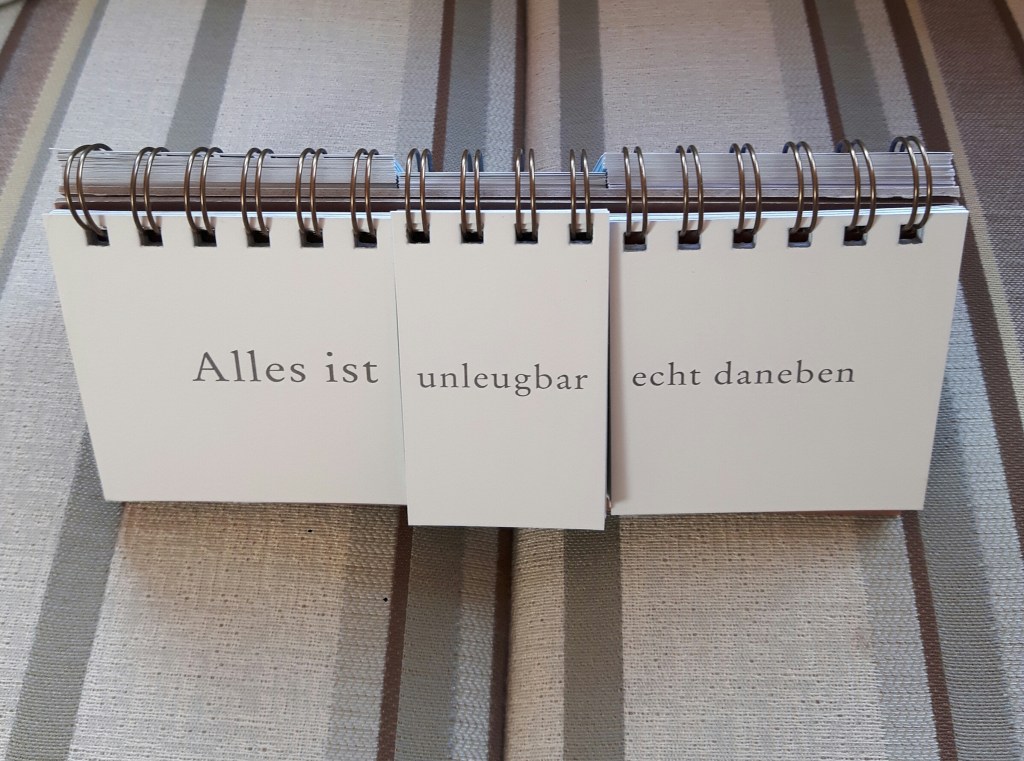 Alles ist unleugbar echt daneben